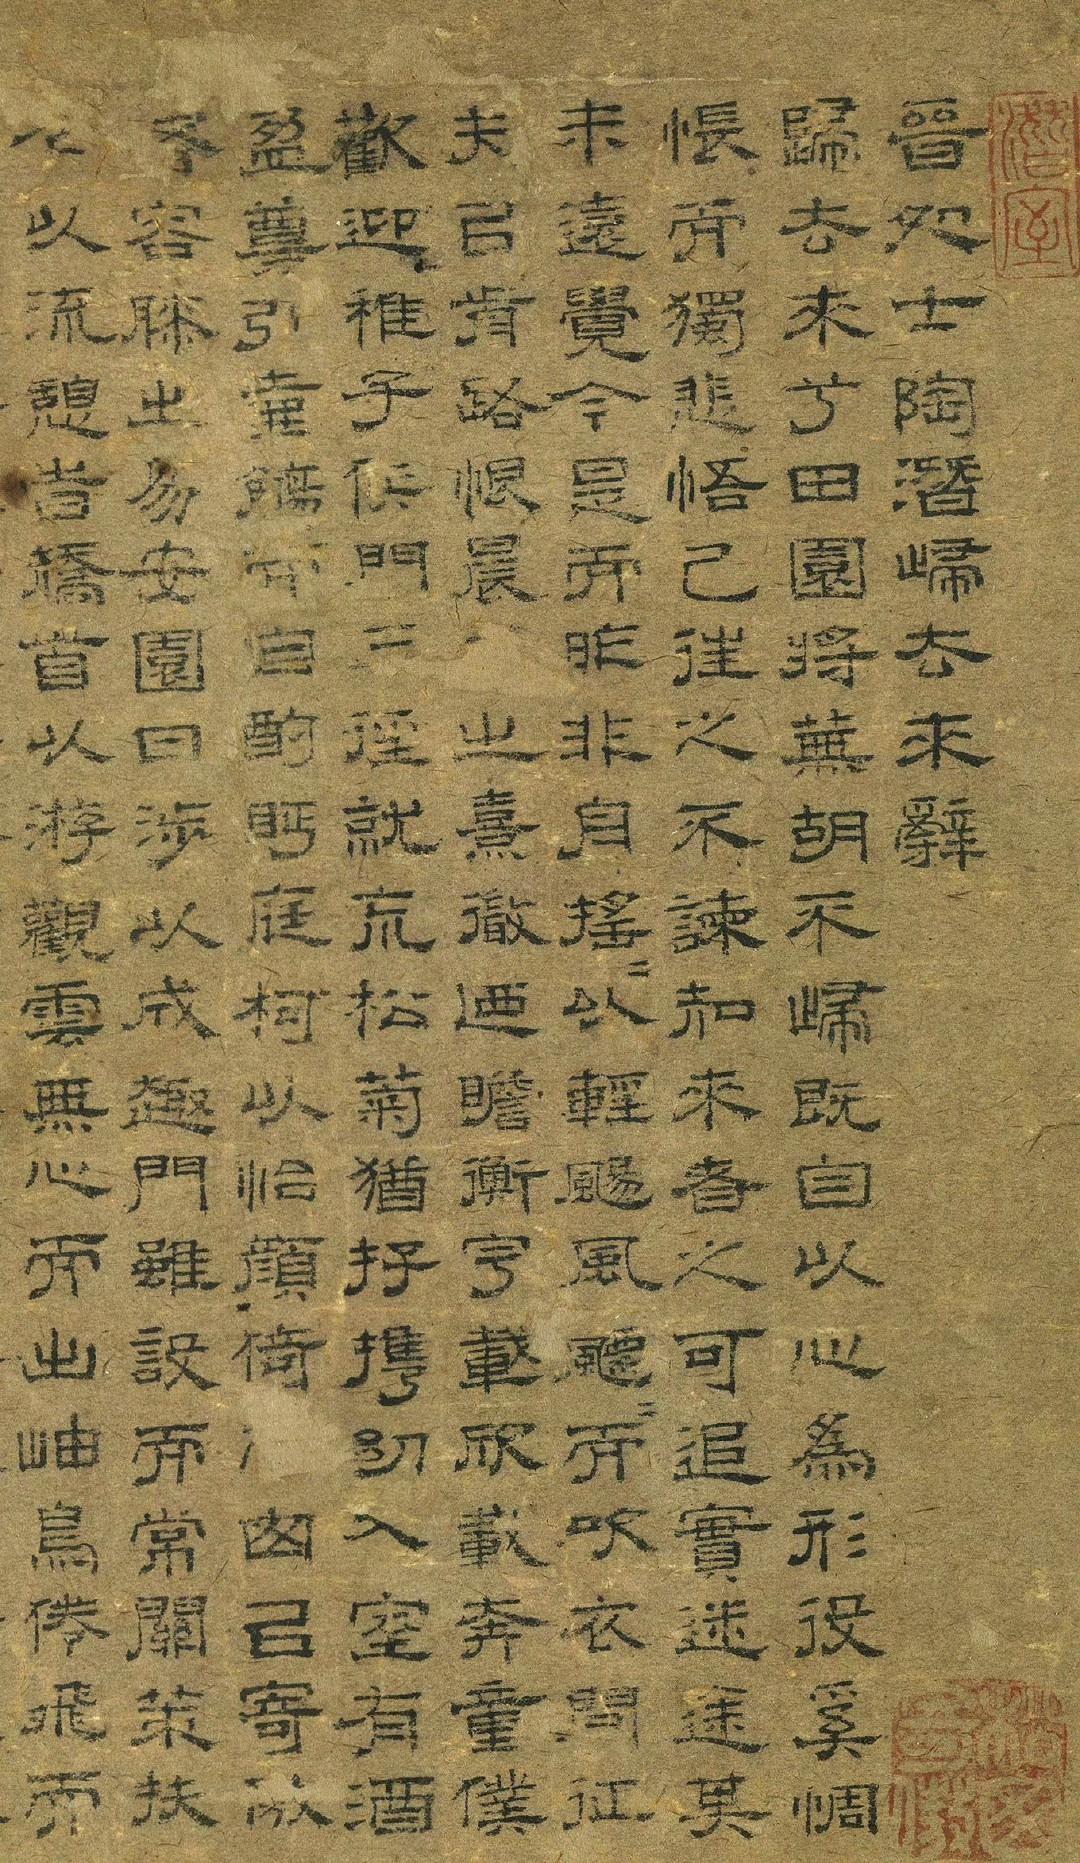 晉処士陶潛歸去来辭
歸去來兮田園將蕪胡不歸既自以心為形役奚惆
悵而獨悲悟已往之不諫知來者之可追實迷途其
未遠覺今是而昨非自搖〻以輕颺風飄〻而吹衣問征
夫㠯歬路恨晨之熹微迺瞻衡宇載欣載奔童僕
歡迎稚子候門三徑就荒松菊猶存攜幼入室有酒
盈尊引壺觴而自酌眄庭柯以怡顏倚囱㠯寄傲
容膝之易安園日涉以成趣門雖設而常關策扶
以流憩旹矯首以游觀雲無心而出岫鳥倦飛而